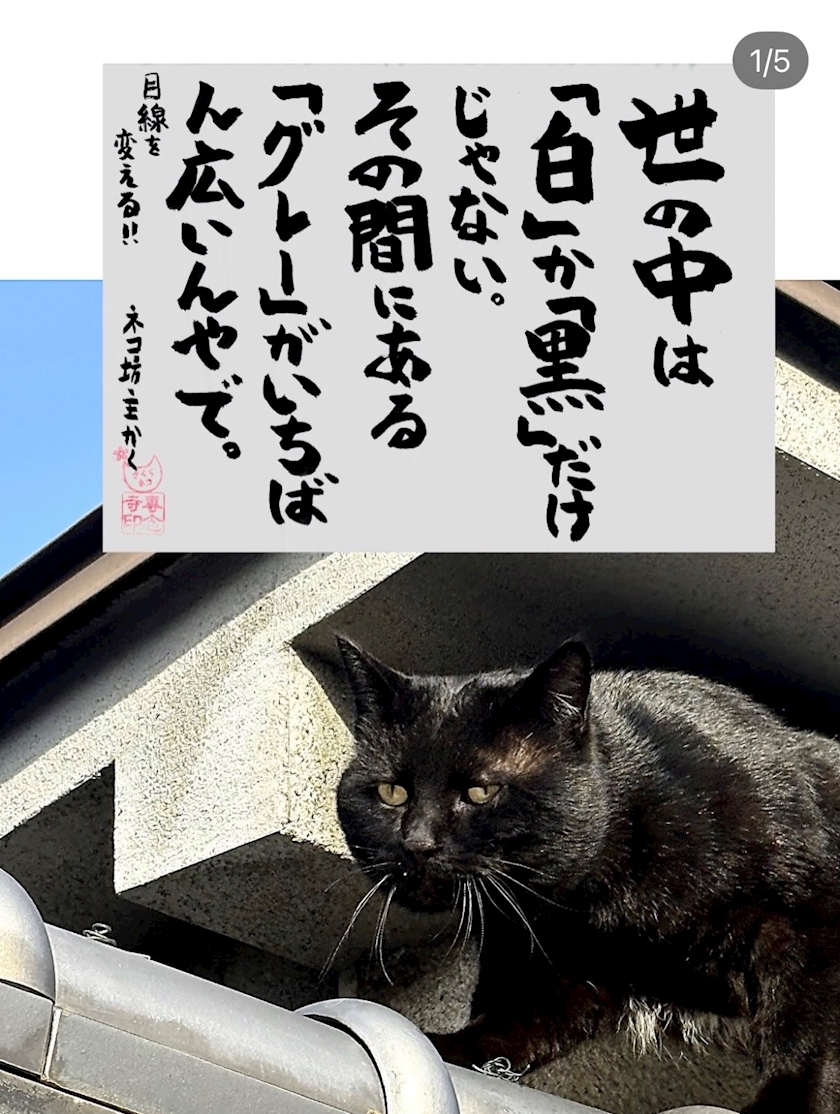 1/5
世の中は
「白」か「黒」だけ
じゃない。
その間にある
「グレー」がいちば
ん広いんやで。
目線を
変える!!
ネコ坊主かく
さくら
ネコ
専念
寺印